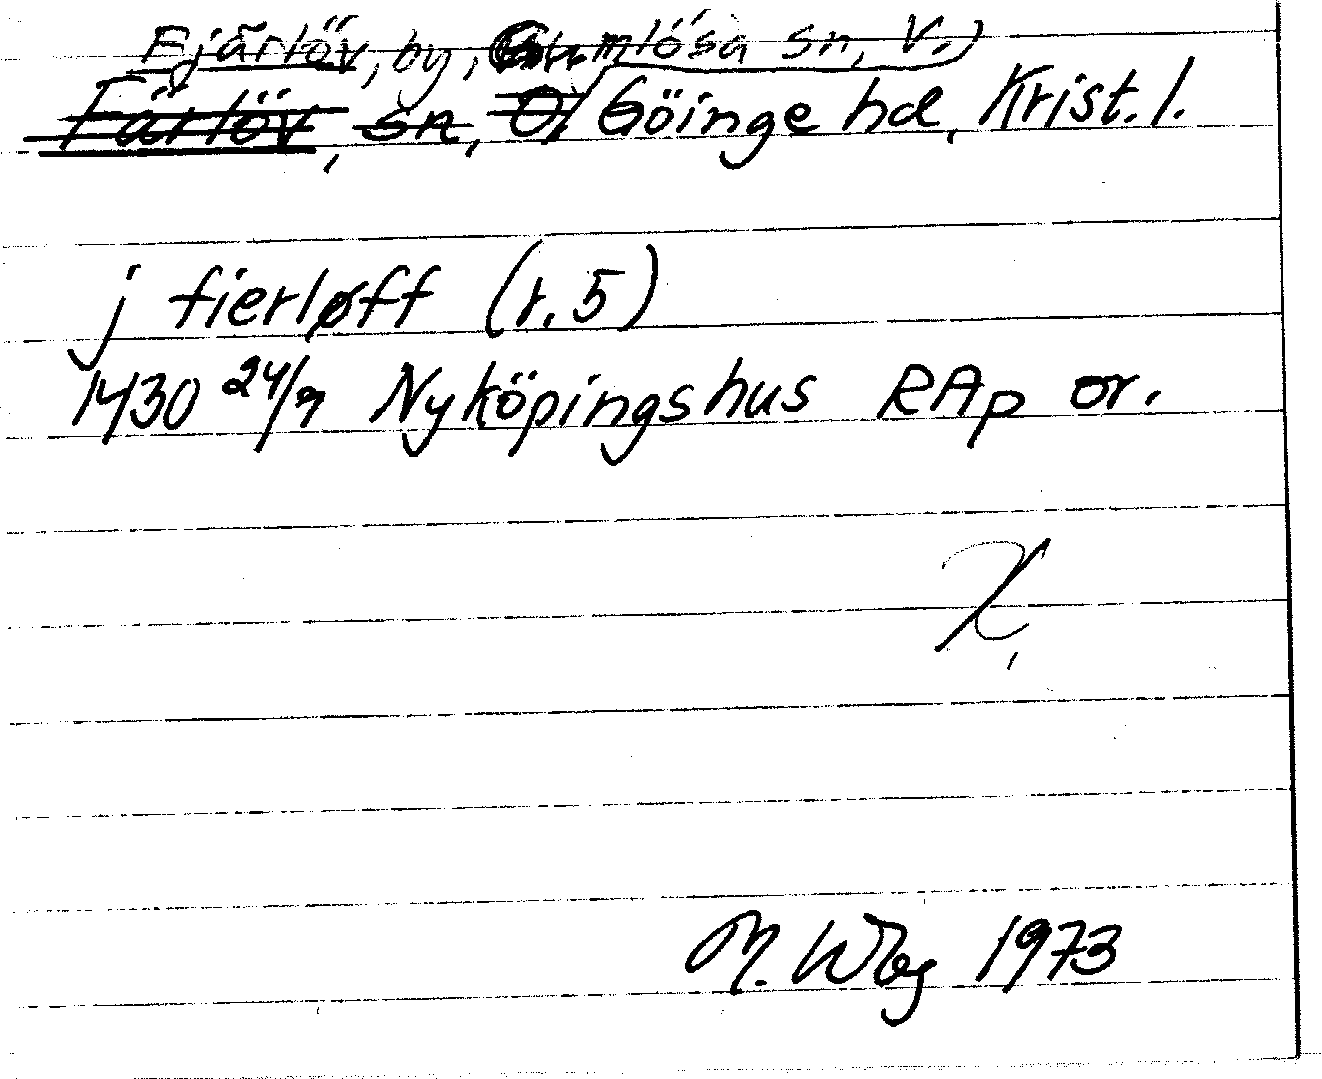 Fjärlöv, by, Gumlösa sn, V.
Färlöv, sn, Ö Göinge hd, Krist. l.
j fierløff (r. 5)
1430 24/9 Nyköpingshus RAp or.
M. Wbg 1973